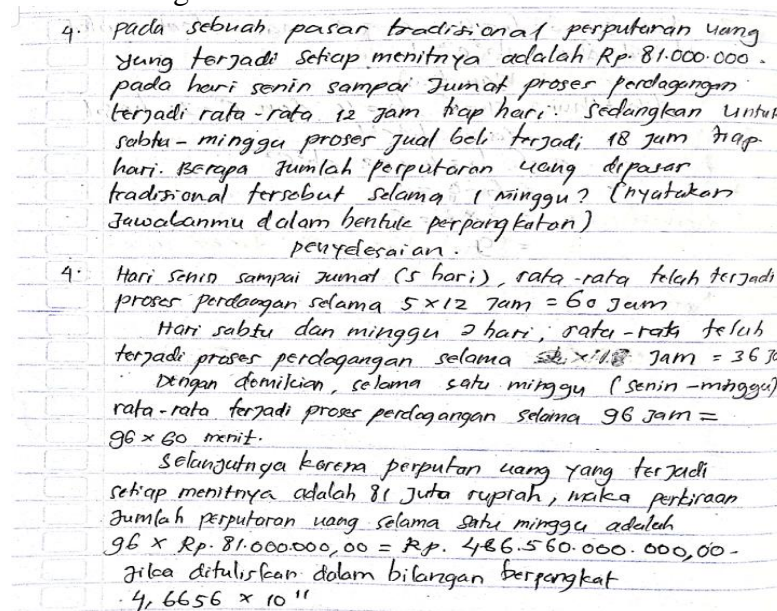 4. pada sebuah pasar tradisional perputaran uang
yang terjadi setiap menitnya adalah Rp. 81.000.000.
pada hari senin sampai Jumat proses perdagangan
terjadi rata-rata 12 jam tiap hari. sedangkan untuk
sabtu - minggu proses jual beli terjadi 18 jam tiap
hari. Berapa Jumlah perputaran uang dipasar
tradisional tersebut selama 1 minggu? (nyatakan
Jawabanmu dalam bentuk perpangkatan)
penyelesaian.
4. Hari senin sampai Jumat (5 hari), rata-rata telah terjadi
proses perdangan selama 5 x 12 Jam = 60 Jam
Hari sabtu dan minggu 2 hari, rata-rata telah
terjadi proses perdagangan selama Jam = 36 ja
Dengan domikian, selama satu minggu (senin - minggu)
rata-rata terjadi proses perdagangan selama 96 Jam =
96 x 60 menit.
Selanjutnya karena perputan uang yang terjadi
setiap menitnya adalah 81 Juta rupiah, maka perkiraan
Jumlah perputaran uang selama satu minggu adalah
96 x Rp. 81.000.000,00 = Rp. 466.560.000.000,00-
Jika dituliskan dalam bilangan berpangkat
4,6656 x 10¹¹